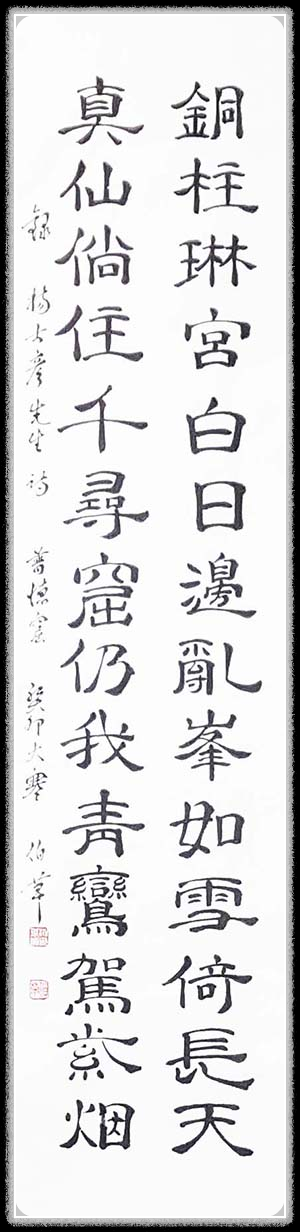 銅柱琳宮白日邊亂峯如雪倚長天
真仙倘住千尋窟仍我青鸞駕紫烟
錄 楊士彥先生詩 普德窟 癸卯大寒 伯華